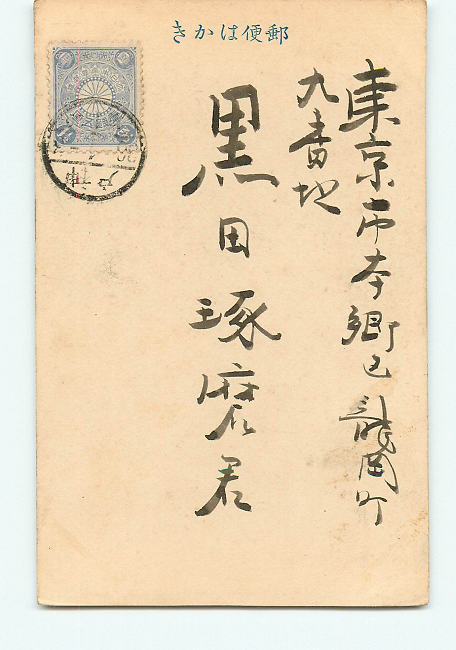 郵便はかき
東京市本郷区龍岡町
九番地
黒田琢磨君